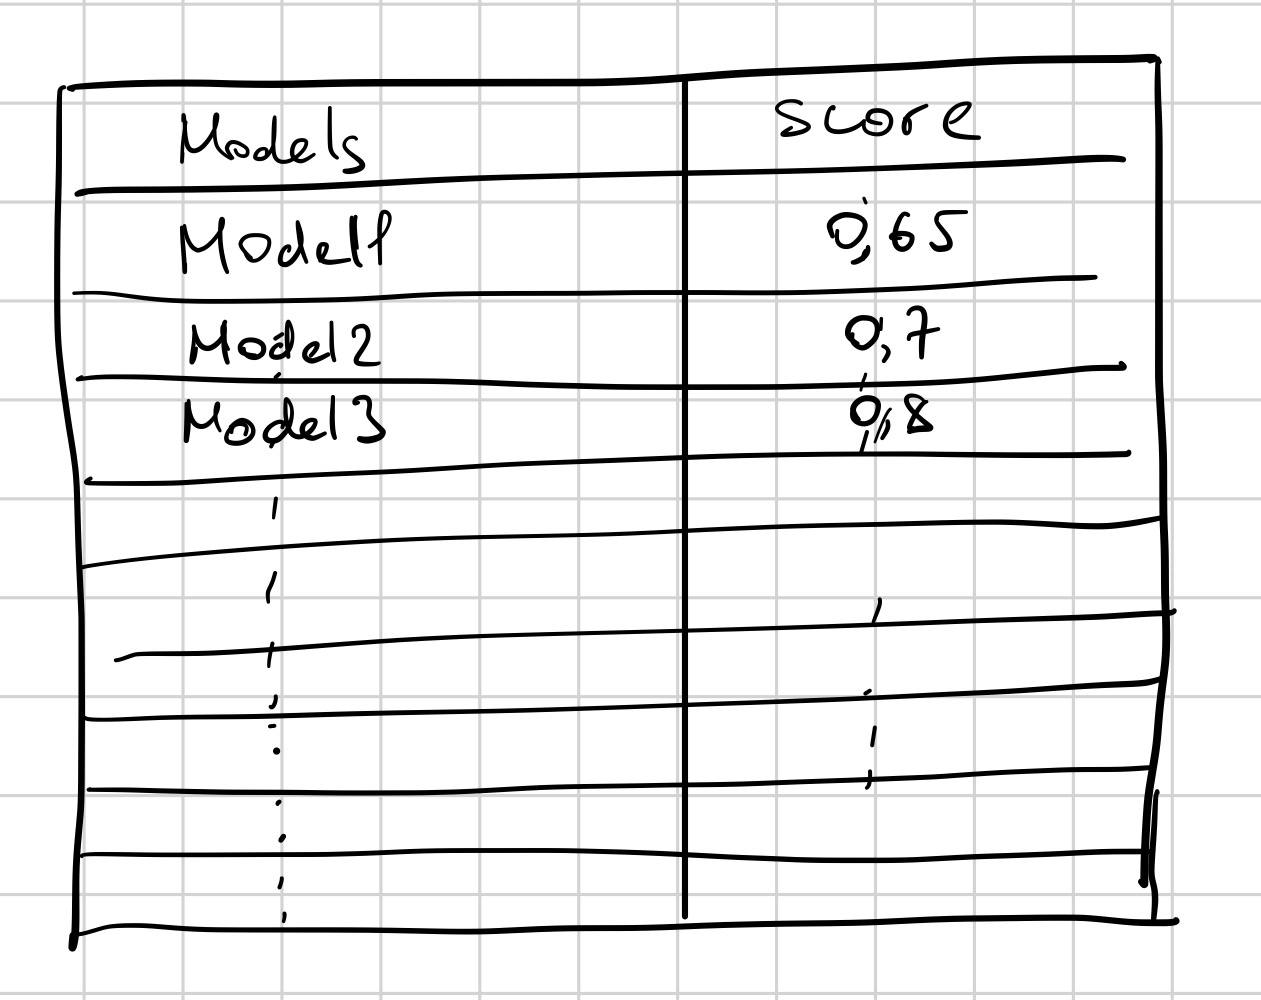 Models Score
Model1 0,65
Model2 0,7
Model3 0,8